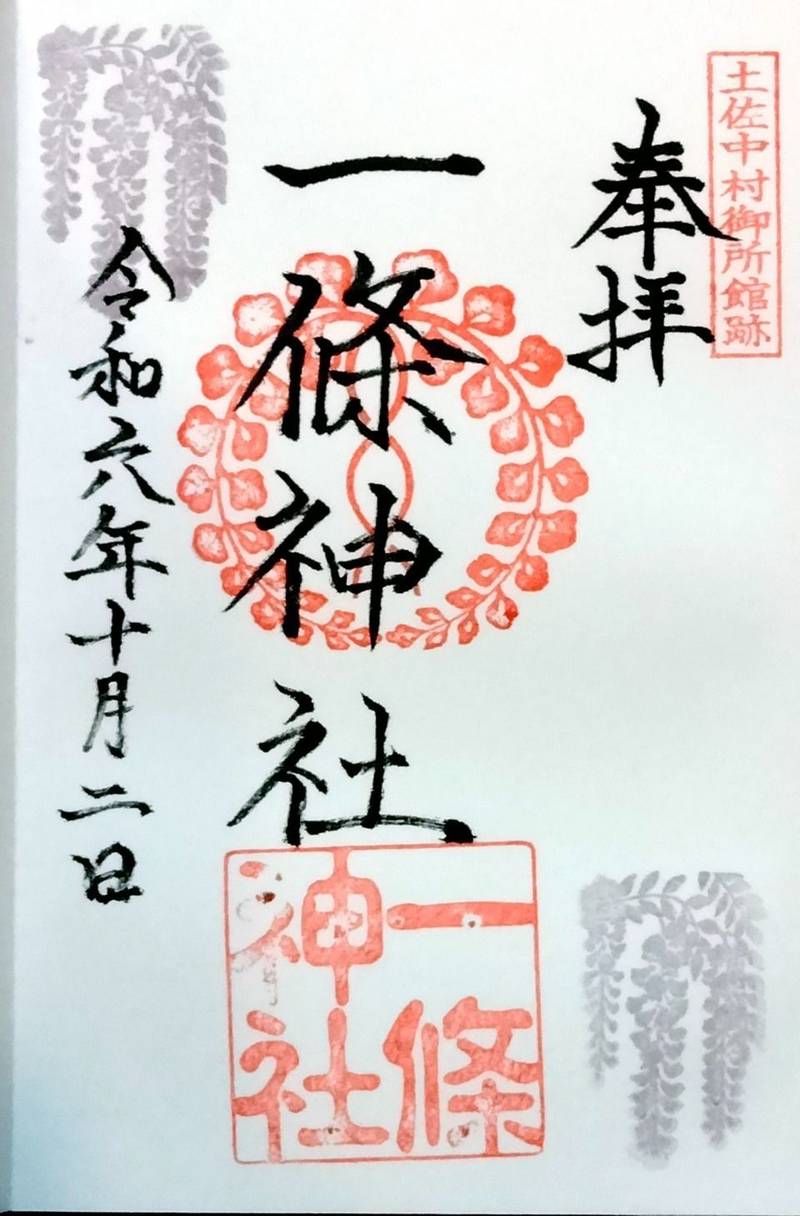 土佐中村御所館跡
奉拝
一條神社
令和六年十月二日
一條
神社